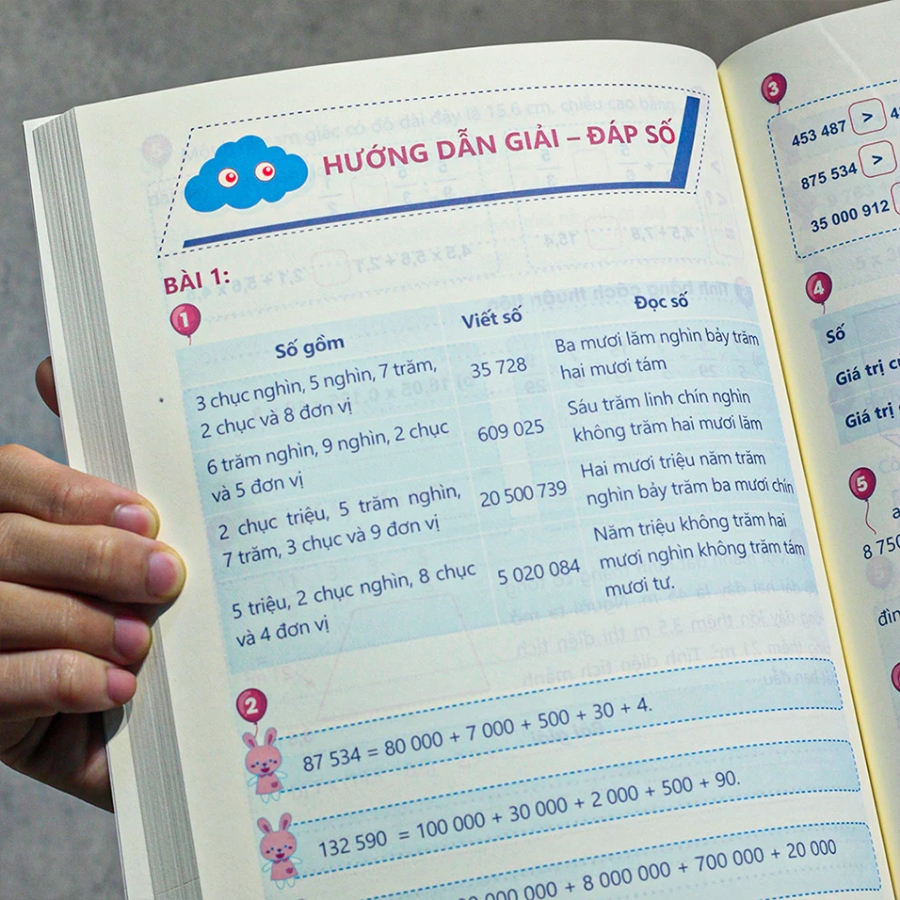 HƯỚNG DẪN GIẢI – ĐÁP SỐ
BÀI 1:
1
Số gồm Viết số Đọc số
3 chục nghìn, 5 nghìn, 7 trăm,
2 chục và 8 đơn vị
35 728
Ba mươi lăm nghìn bảy trăm
hai mươi tám
6 trăm nghìn, 9 nghìn, 2 chục
và 5 đơn vị
609 025
Sáu trăm linh chín nghìn
không trăm hai mươi lăm
2 chục triệu, 5 trăm nghìn,
7 trăm, 3 chục và 9 đơn vị
20 500 739
Hai mươi triệu năm trăm
nghìn bảy trăm ba mươi chín
5 triệu, 2 chục nghìn, 8 chục
và 4 đơn vị
5 020 084
Năm triệu không trăm hai
mươi nghìn không trăm tám
mươi tư.
2
87 534 = 80 000 + 7 000 + 500 + 30 + 4.
132 590 = 100 000 + 30 000 + 2 000 + 500 + 90.
000 000 + 8 000 000 + 700 000 + 20 000
3
453 487 >
875 534 >
35 000 912
4
Số
Giá trị
Giá trị
5
8 750